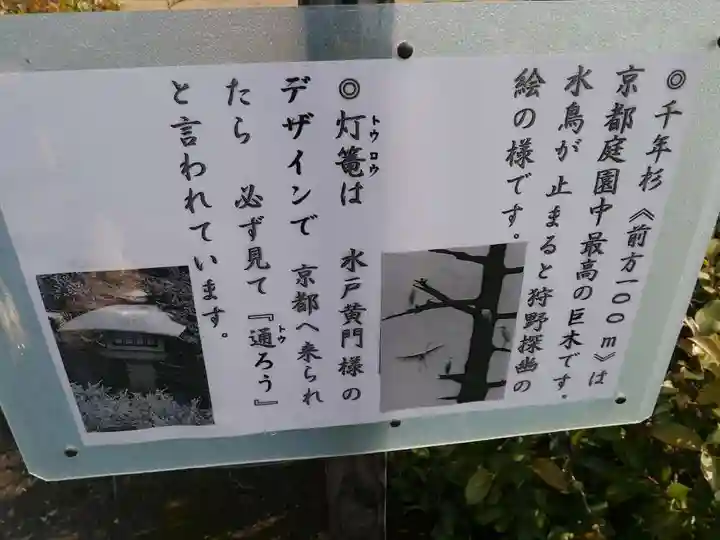 ◎千年杉《前方一〇〇m》は
京都庭園中最高の巨木です。
水鳥が 止まると狩野探幽の
絵の様です。
◎灯篭は 水戸黄門様の
トウロウ
デザインで 京都へ来られ
たら 必ず見て『通ろう』
トウ
と言われています。